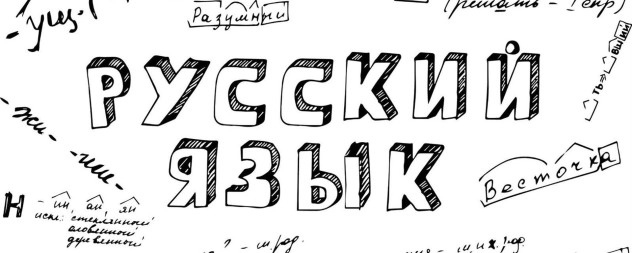 Разумный
(решать – 1 спр)
-ущ-
РУССКИЙ
ЯЗЫК
жи-
-ши-
Весточка
Н
- ин, ан, ян
искл.: стеклянный
оловянный
деревянный
? - м.род.